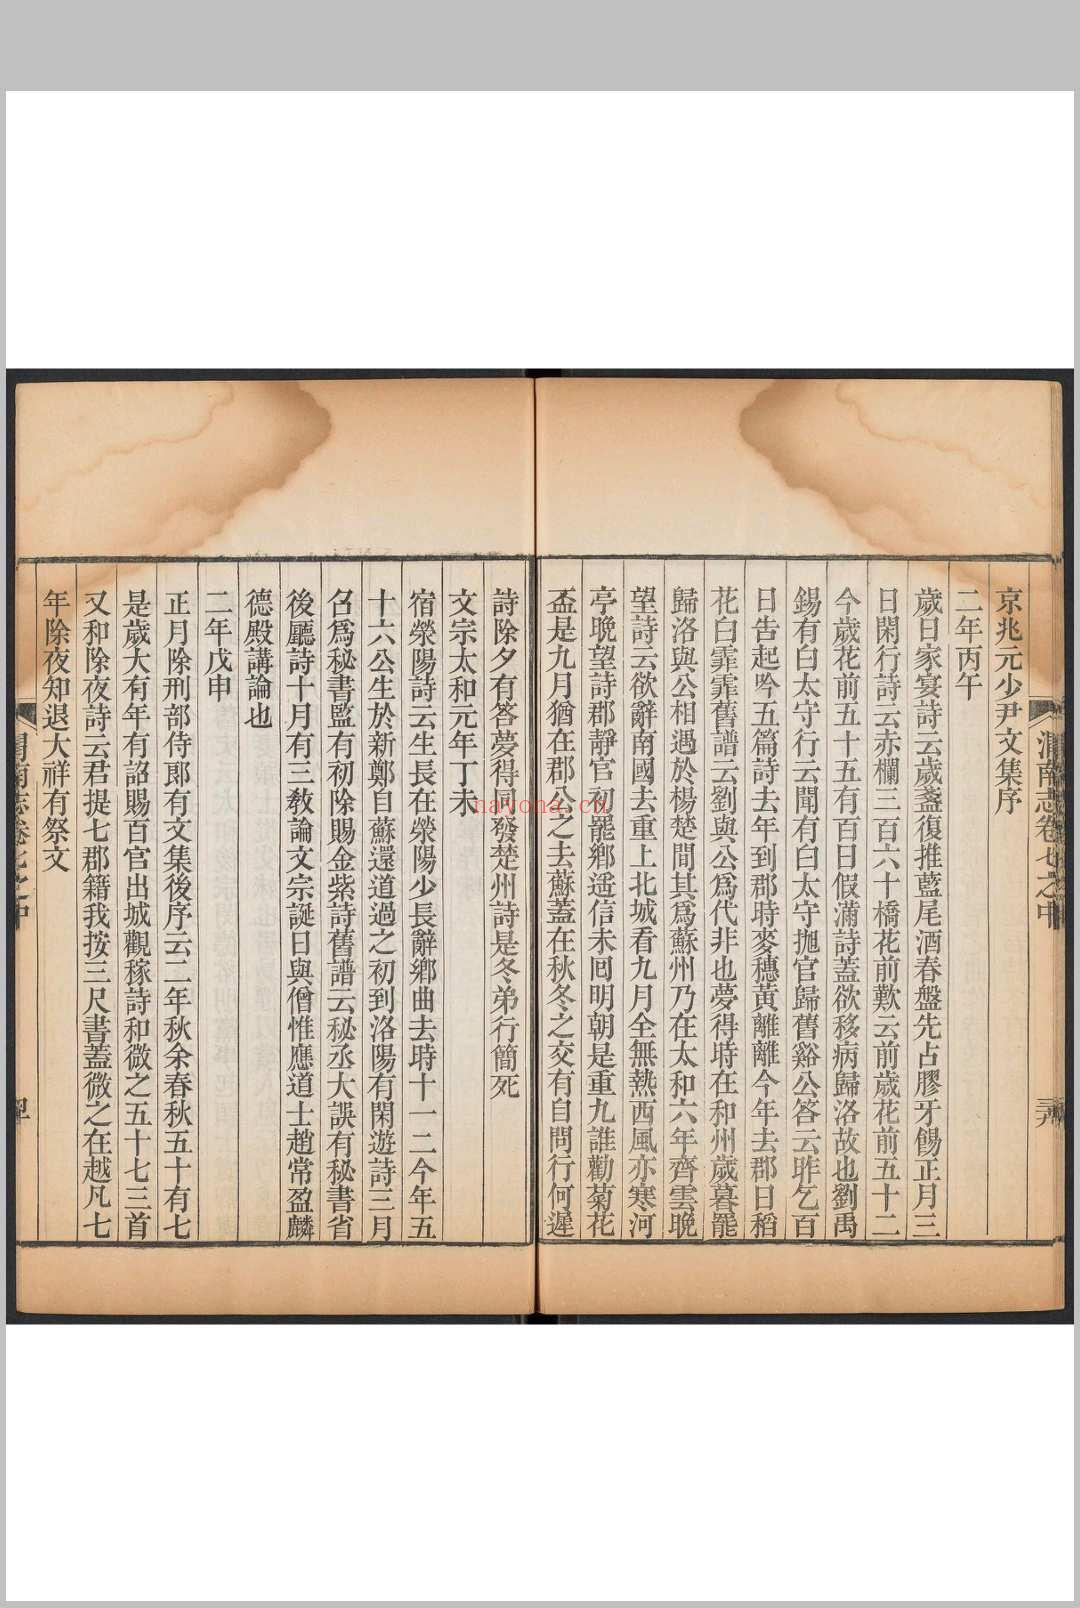 京兆元少尹文集序
二年丙午
歲日家宴詩云歲盞復推藍尾酒春盤先占膠牙餳正月三
日閑行詩云赤欄三百六十橋花前歎云前歲花前五十二
今歲花前五十五有百日假滿詩蓋欲移病歸洛故也劉禹
錫有白太守行云聞有白太守抛官歸舊谿公答云昨乞百
日告起吟五篇詩去年到郡時麥穗黃離離今年去郡日稻
花白霏霏舊譜云劉與公爲代非也夢得時在和州歲暮罷
歸洛與公相遇於楊楚間其爲蘇州乃在太和六年齊雲晚
望詩云欲辭南國去重上北城看九月全無熱西風亦寒河
亭晚望詩郡靜官初罷鄉遥信未囘明朝是重九誰勸菊花
盃是九月猶在郡公之去蘇蓋在秋冬之交有自問行何遲
詩除夕有答夢得同發楚州詩是冬弟行簡死
文宗太和元年丁未
宿滎陽詩云生長在滎陽少長辭鄉曲去時十一二今年五
十六公生於新鄭自蘇還道過之初到洛陽有閑遊詩三月
召爲秘書監有初除賜金紫詩舊譜云秘丞大誤有秘書省
後廳詩十月有三敎論文宗誕日與僧惟應道士趙常盈麟
德殿講論也
二年戊申
正月除刑部侍郎有文集後序云二年秋余春秋五十有七
是歲大有年有詔賜百官出城觀稼詩和微之五十七三首
又和除夜詩云君提七郡籍我按三尺書蓋微之在越凡七
年除夜知退大祥有祭文
渭南志卷七之中
navona.cn